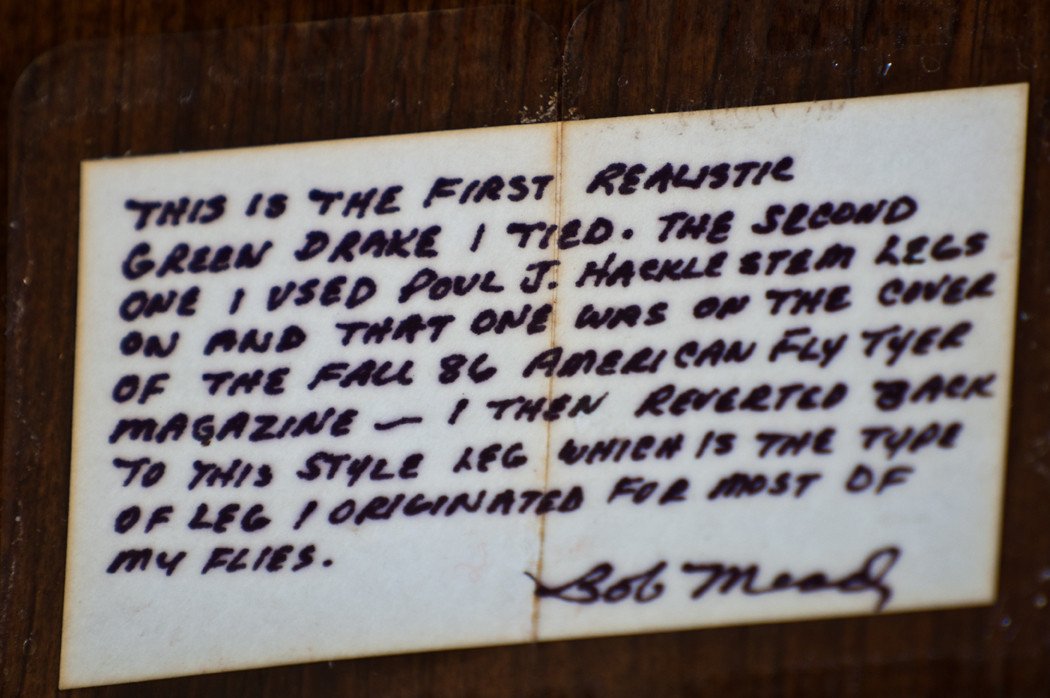 THIS IS THE FIRST REALISTIC
GREEN DRAKE I TIED. THE SECOND
ONE I USED POUL J. HACKLE STEM LEGS
ON AND THAT ONE WAS ON THE COVER
OF THE FALL 86 AMERICAN FLY TYER
MAGAZINE — I THEN REVERTED BACK
TO THIS STYLE LEG WHICH IS THE TYPE
OF LEG I ORIGINATED FOR MOST OF
MY FLIES.
Bob Mead